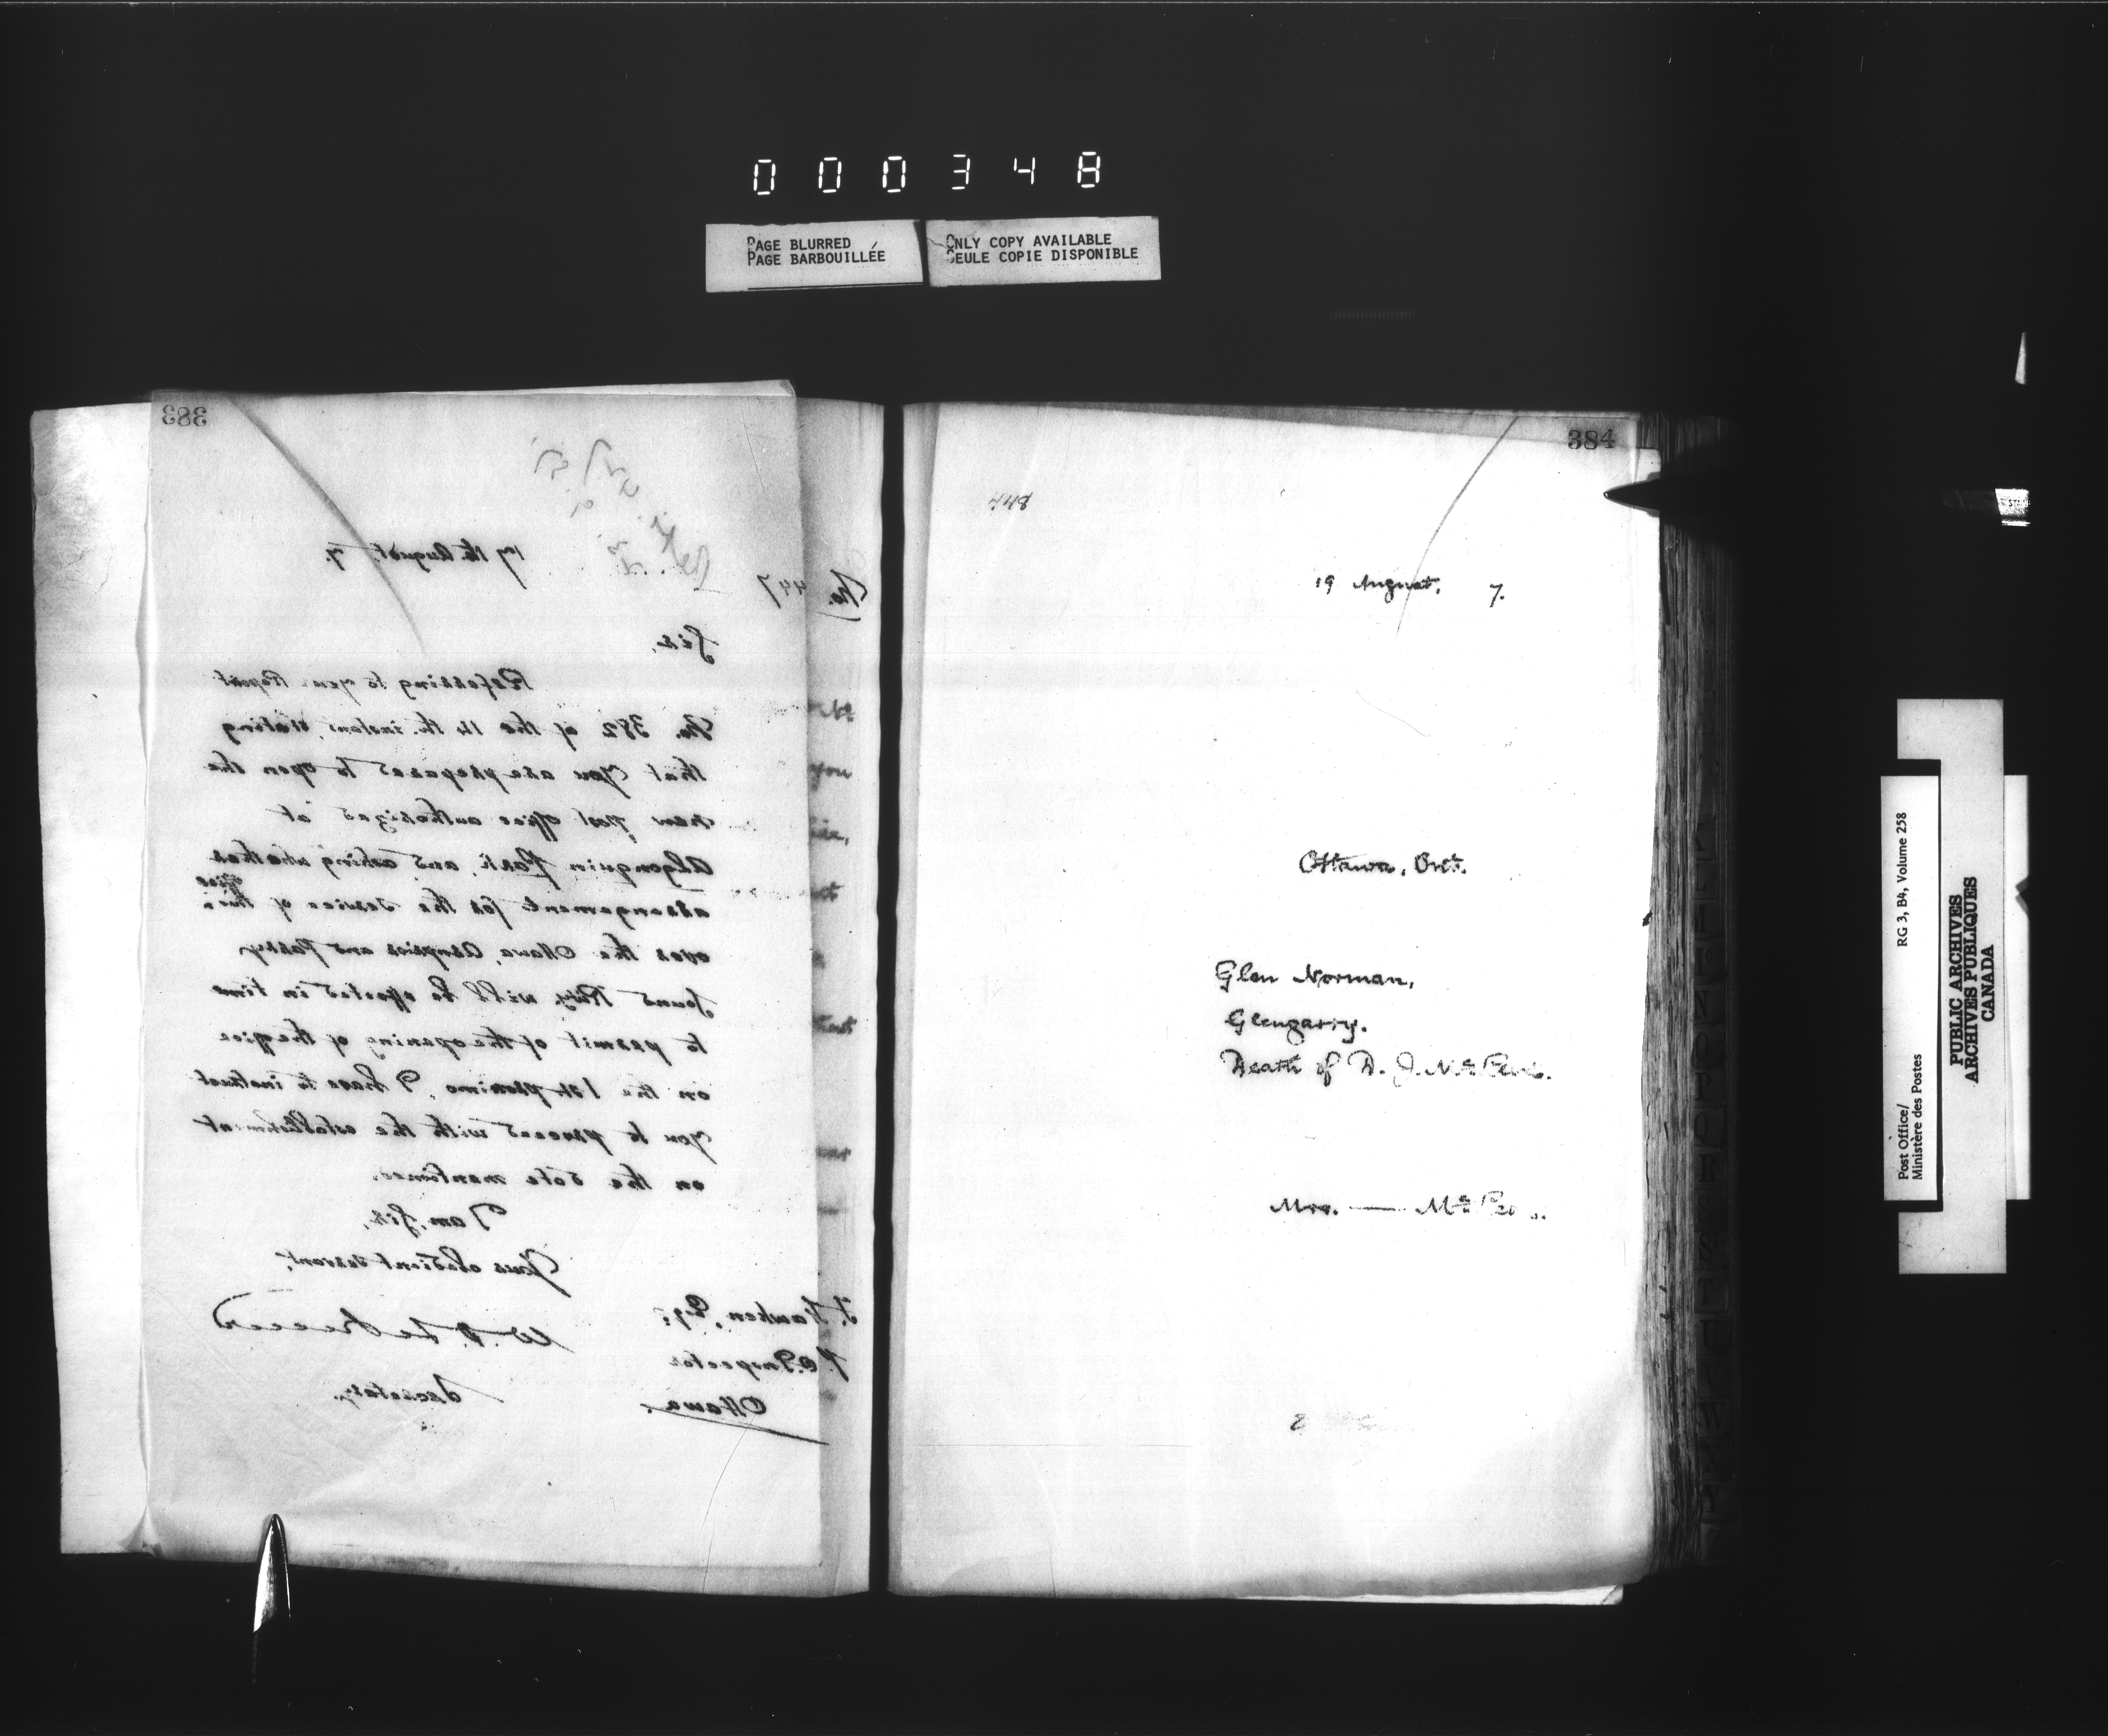 000348
PAGE BLURRED
PAGE BARBOUILLÉE
ONLY COPY AVAILABLE
SEULE COPIE DISPONIBLE
383
17th August, 7.
No. 447
Sir,
Referring to your Report
No. 382 of the 14th instant, stating
that you are prepared to open the
new post office authorized at
Algonquin Park, and asking whether
arrangements for the service of this office
over the Ottawa, Arnprior and Parry
Sound Rwy. will be effected in time
to permit of the opening of the office
on the 1st proximo, I have to instruct
you to proceed with the establishment
on the date mentioned.
I am, Sir,
Your obedient servant,
W. D. LeSueur
Secretary.
J. Hawken, Esq:
P.O. Inspector
Ottawa.
384
448
19 August, 7.
Ottawa, Ont.
Glen Norman,
Glengarry.
Death of D. J. Mc
Mrs. — Mc
Post Office/
Ministère des Postes
RG 3, B4, Volume 258
PUBLIC ARCHIVES
ARCHIVES PUBLIQUES
CANADA